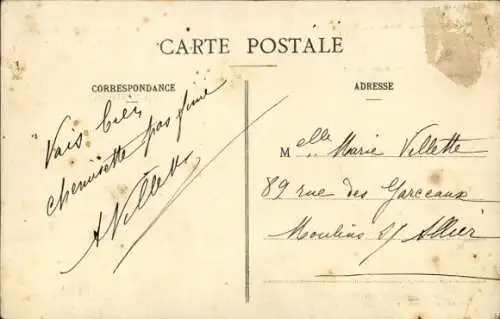 CARTE POSTALE
CORRESPONDANCE
Vais bien
chemisette pas finie
A Villette
ADRESSE
Melle Marie Villette
89 rue des Garceaux
Moulins s/ Allier